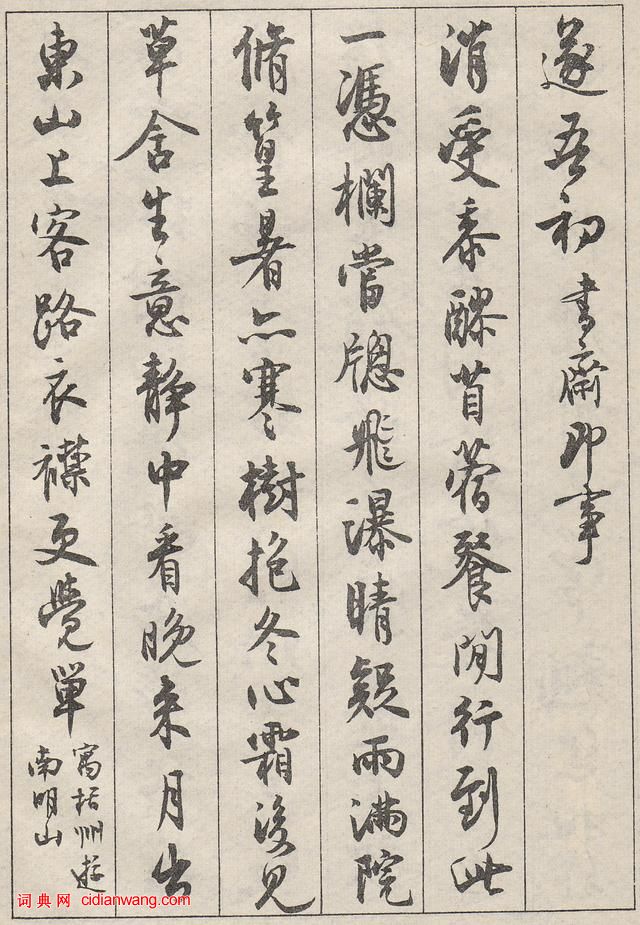 遂吾初書齋即事
消受黍醪苜蓿餐閒行到此
一憑欄當牕飛瀑晴疑雨滿院
脩篁暑亦寒樹抱冬心霜後見
草含生意靜中看晚來月出
東山上客路衣襟更覺單寓括州遊
南明山
词典网 cidianwang.com